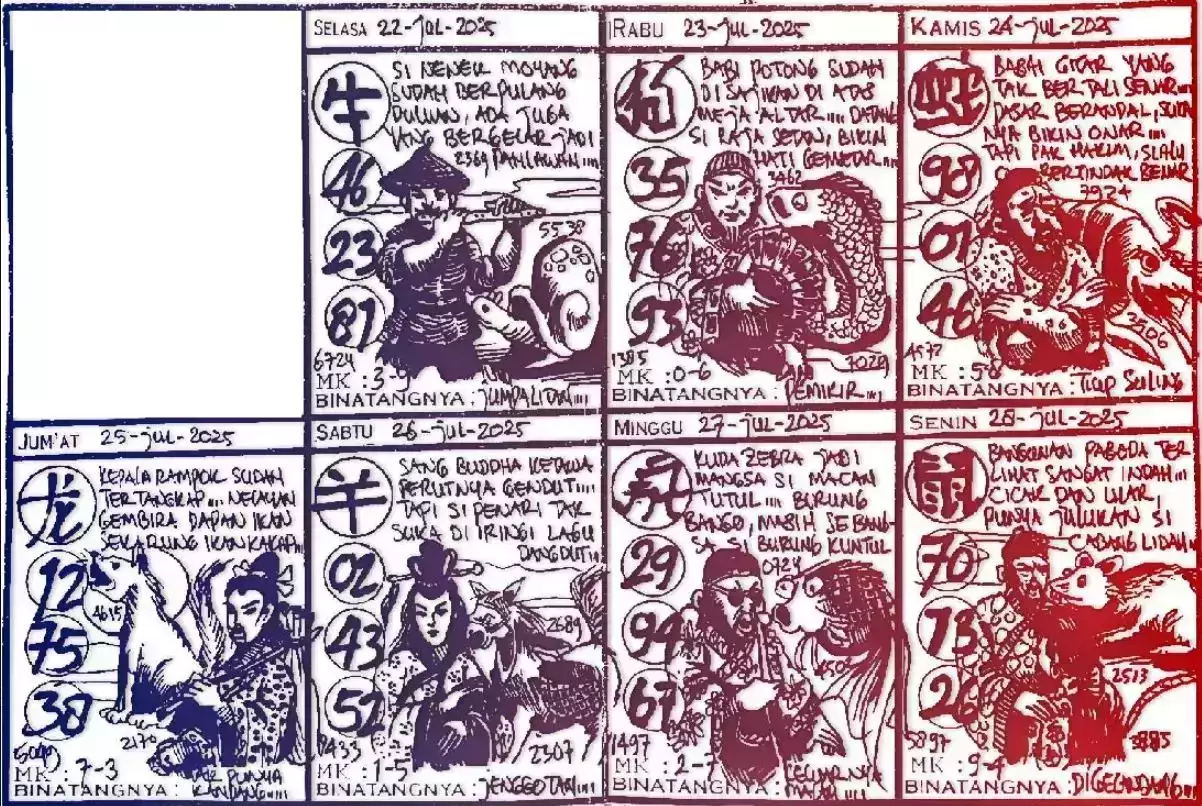 SELASA 22-JUL-2025
牛
SI NENEK MOYANG
SUDAH BERPULANG
DULUAN, ADA JUGA
YANG BERGELAR JADI
2369 PAHLAWAN....
46
23
5538
87
6724
MK : 3-9
BINATANGNYA : JUMPALITAN....
RABU 23-JUL-2025
狗
BABI POTONG SUDAH
DI SAJIKAN DI ATAS
MEJA ALTAR.... DATANG
SI RAJA SETAN, BIKIN
HATI GEMETAR....
3462
35
76
93
1385
7029
MK : 0-6
BINATANGNYA : PEMIKIR....
KAMIS 24-JUL-2025
蛇
BABAH GITAR YANG
TAK BERTALI SENAR....
DASAR BERANDAL, SUKA
NYA BIKIN ONAR....
TAPI PAK HAKIM, SLALU
BERTINDAK BENAR
7924
98
01
46
4572
MK : 5-8
BINATANGNYA : TIUP SULING
JUM'AT 25-JUL-2025
龙
KEPALA RAMPOK SUDAH
TERTANGKAP.... NELAYAN
GEMBIRA DAPAN IKAN
SEKARUNG IKAN KAKAP....
12
4615
75
38
2170
MK : 7-3
PUNYA
BINATANGNYA : KANDANG....
SABTU 26-JUL-2025
羊
SANG BUDDHA KETAWA
PERUTNYA GENDUT....
TAPI SI PENARI TAK
SUKA DI IRINGI LAGU
DANGDUT....
02
43
2689
52
1433
2307
MK : 1-5
BINATANGNYA : JENGGOTAN....
MINGGU 27-JUL-2025
KUDA ZEBRA JADI
MANGSA SI MACAN
TUTUL.... BURUNG
BANGO, MASIH SEBANG-
SA SI BURUNG KUNTUL
0724
29
94
67
1497
MK : 2-7
BINATANGNYA :
SENIN 28-JUL-2025
鼠
BANGUNAN PAGODA TER
LIHAT SANGAT INDAH....
CICAK DAN ULAR,
PUNYA JULUKAN SI
CABANG LIDAH....
70
73
2513
26
5897
MK : 9-4
BINATANGNYA : DIGELANDANG....